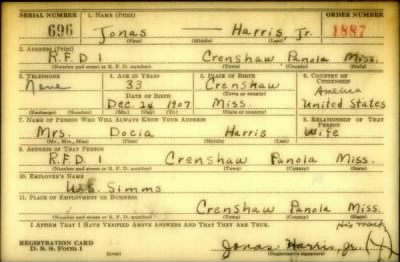 SERIAL NUMBER 1. NAME (Print) ORDER NUMBER
696 Jonas —— Harris, Jr. 1887
(First) (Middle) (Last)
2. ADDRESS (Print)
R.F.D 1 Crenshaw Panola Miss.
(Number and street or R. F. D. number) (Town) (County) (State)
3. TELEPHONE 4. AGE IN YEARS 5. PLACE OF BIRTH 6. COUNTRY OF CITIZENSHIP
None 33 Crenshaw America
DATE OF BIRTH (Town or county)
Dec. 24 1907 Miss. United States
(Exchange) (Number) (Mo.) (Day) (Yr.) (State or country)
7. NAME OF PERSON WHO WILL ALWAYS KNOW YOUR ADDRESS 8. RELATIONSHIP OF THAT PERSON
Mrs. Docia Harris Wife
(Mr., Mrs., Miss) (First) (Middle) (Last)
9. ADDRESS OF THAT PERSON
R.F.D. 1 Crenshaw Panola Miss.
(Number and street or R. F. D. number) (Town) (County) (State)
10. EMPLOYER'S NAME
W.S. Simms
11. PLACE OF EMPLOYMENT OR BUSINESS
Crenshaw Panola Miss.
(Number and street or R. F. D. number) (Town) (County) (State)
I AFFIRM THAT I HAVE VERIFIED ABOVE ANSWERS AND THAT THEY ARE TRUE.
his mark
REGISTRATION CARD
D. S. S. Form 1 Jonas Harris, Jr. (X)
(Registrant's signature)